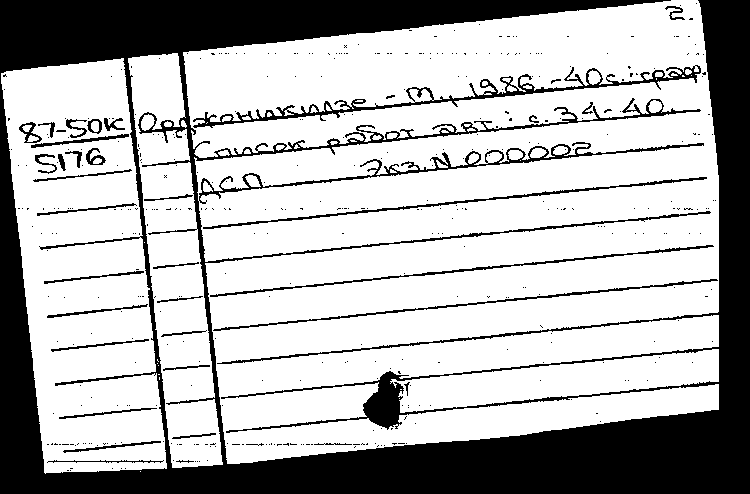 2.
87-50К Орджоникидзе. - М., 1986. - 40с. : граф.
5176 Список работ авт.: с. 34-40.
ДСП Экз. N 000002